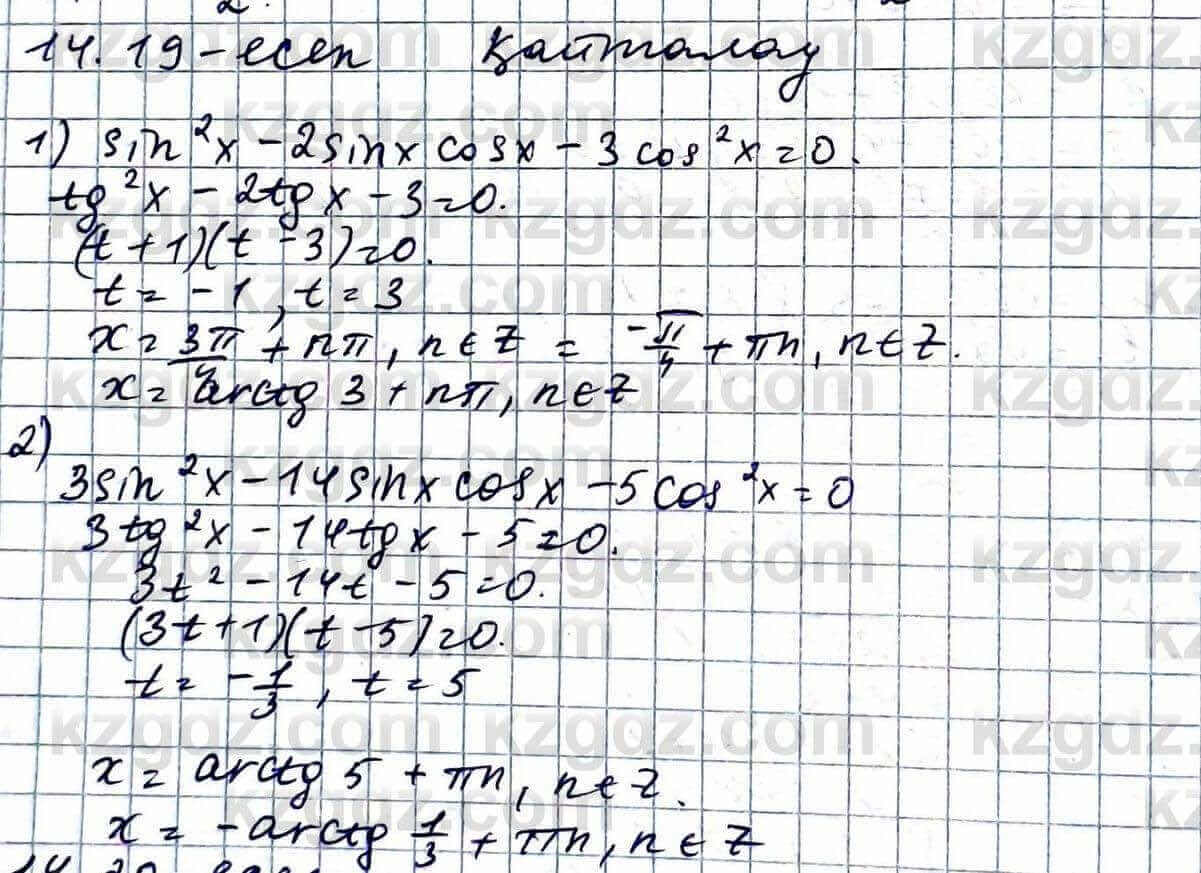 14.19-есеп Қайталау
1) sin²x - 2sinx cosx - 3cos²x = 0.
tg²x - 2tgx - 3 = 0.
(t+1)(t-3) = 0.
t = -1, t = 3
x = 3π/4 + nπ, n∈Z = -π/4 + πn, n∈Z.
x = arctg 3 + nπ, n∈Z
2)
3sin²x - 14sinx cosx - 5cos²x = 0
3tg²x - 14tgx - 5 = 0.
3t² - 14t - 5 = 0.
(3t+1)(t-5) = 0.
t = -1/3, t = 5
x = arctg 5 + πn, n∈Z.
x = -arctg 1/3 + πn, n∈Z
kzgdz.com